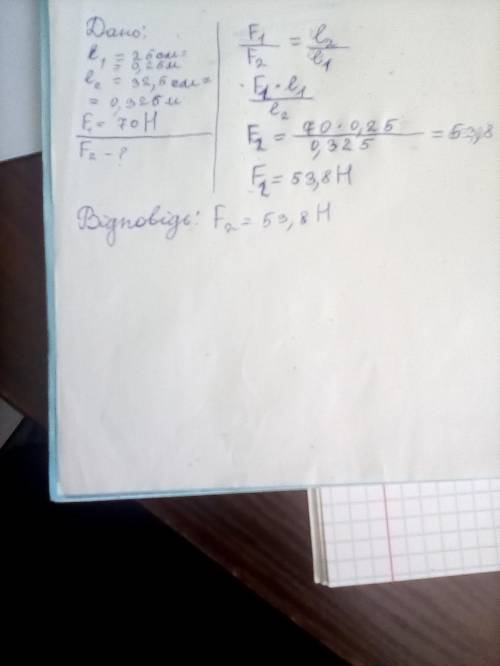 Дано:
l₁ = 25 см =
= 0,25 м
l₂ = 32,5 см =
= 0,325 м
F₁ = 70 Н
F₂ - ?
F₁/F₂ = l₂/l₁
F₁ · l₁ / l₂
F₂ = 70 · 0,25 / 0,325 = 53,8
F₂ = 53,8 Н
Відповідь: F₂ = 53,8 Н